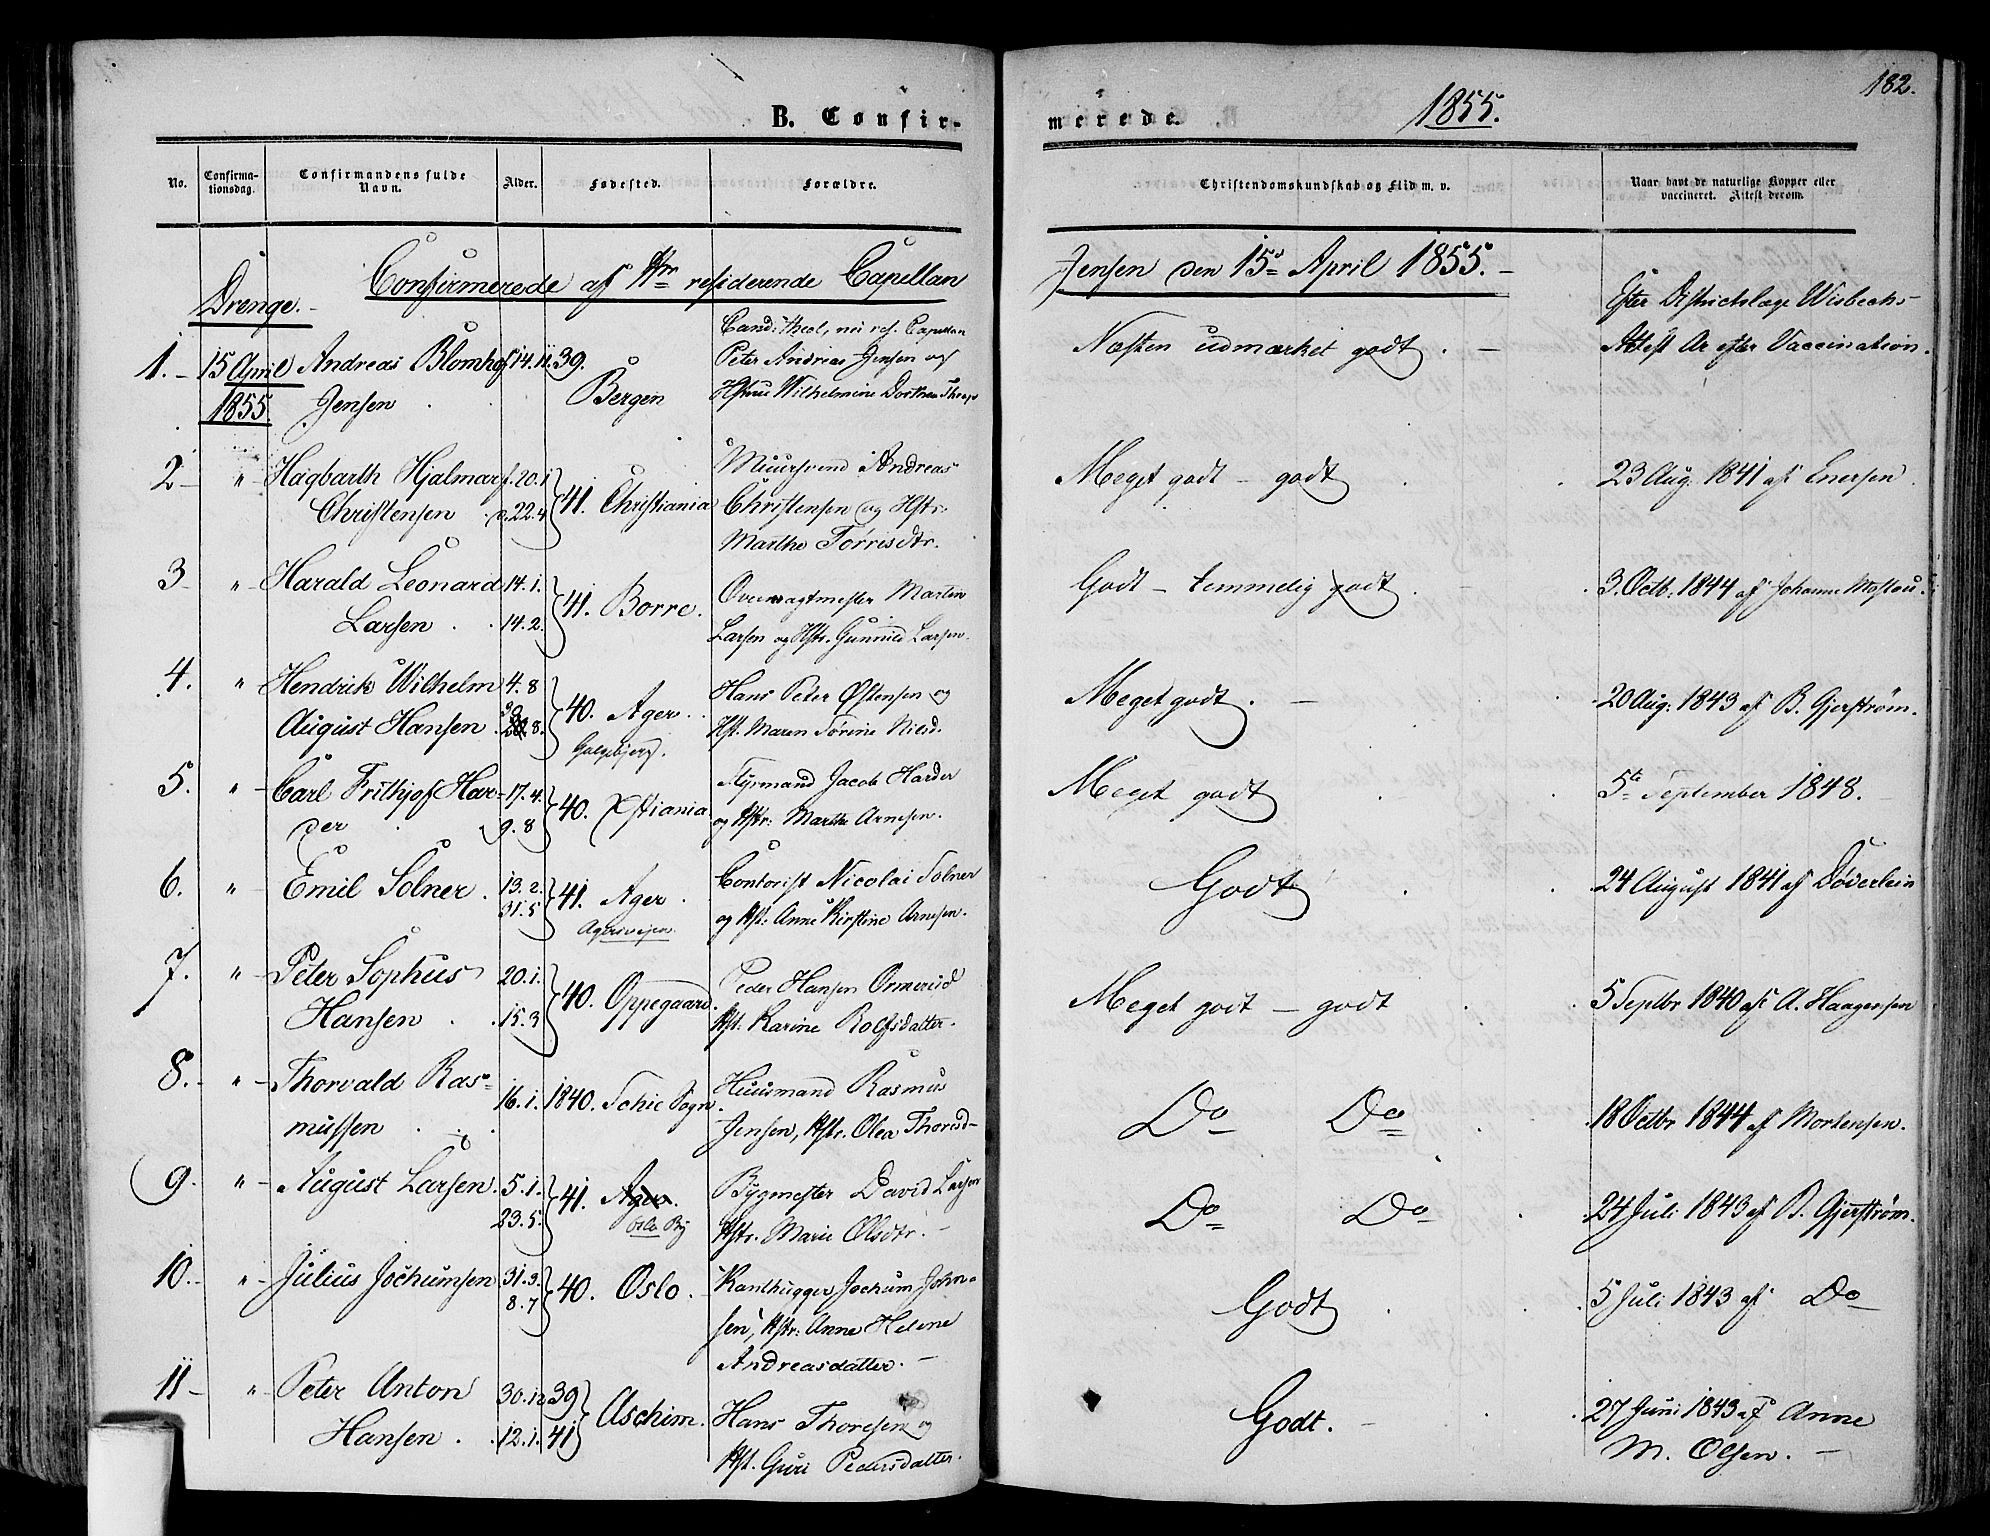 182.
B. Confir-
merede.
1855.
No.
Confirma-
tionsdag.
Confirmandens fulde
Navn.
Alder.
Fødested.
Forældre.
Christendomskundskab og Flid m. v.
Naar havt de naturlige Kopper eller
vaccineret. Attest derom.
Drenge.-
Confirmerede af Hr residerende Capellan
Jensen den 15d April 1855.-
1.- 15 April Andreas Blomhof 14.11.39.
1855 Jensen
Bergen
Cand: theol, nu res. Capellan
Peter Andreas Jensen og
Hstru Wilhelmine Dorthea
Næsten udmærket godt . -
Efter Districtslæge Wisbechs
Attest Ar efter Vaccination.
2 " Hagbarth Hjalmar f. 20.1
Christensen v. 22.4
41. Christiania
Muursvend Andreas
Christensen og Hstr.
Marthe Torrisdtr.
Meget godt - godt
23 Aug. 1841 af Enersen.
3 " Harald Leonard 14.1.
Larsen . . 14.2.
41. Borre.
Overvagtmester Martin
Larsen og Hstr. Gunnild Larsen.
Godt - temmelig godt
3. Octb. 1844 af Johanne
4. " Hendrik Wilhelm 4.8
August Hansen . 8.
40. Ager.
Galgebjerg.
Hans Peter Østensen og
Hst. Maren Sørine Nilsd.
Meget godt. -
20 Aug: 1843 af B. Gjerstrøm.
5. " Carl Frithjof Har- 17.4.
der 9.8
40. Xstiania.
Styrmand Jacob Harder
og Hstr: Marthe Arnesen.
Meget godt
5te September 1848.
6. " Emil Solner. 13.2.
31.5
41. Ager.
Agersvejen.
Contorist Nicolai Solner
og Hst: Anne Kirstine Arnesen.
Godt
24 August 1841 af Døderlein
7. " Peter Sophus 20.1.
Hansen . . 15.3
40. Oppegaard.
Peder Hansen Ormerud
Hst. Karine Rolfsdatter.
Meget godt - godt
5 Septbr 1840 af A. Haagensen
8.- " Thorvald Ras-
mussen . . 16.1. 1840. Schie Sogn.
Huusmand Rasmus
Jensen, Hstr. Olea Thorsd-
Do Do
18 Octbr 1844 af Mortensen.
9. " August Larsen. 5.1.
23.5.
41. Ager.
Oslo By
Bygmester David Larsen
Hstr. Marie Olsdtr. -
Do Do
24 Juli 1843 af B. Gjerstrøm.
10.- " Julius Jochumsen 31.3.
8.7
40. Oslo.
Kanthugger Jochum John-
sen, Hstr: Anne Helene
Andreasdatter. -
Godt
5 Juli 1843 af Do
11 - " Peter Anton 30.12 39
Hansen . . 12.1. 41
Aschim.
Hans Thoresen og
Hst. Guri Pedersdatter.
Godt. -
27 Juni 1843 af Anne
M. Olsen. -